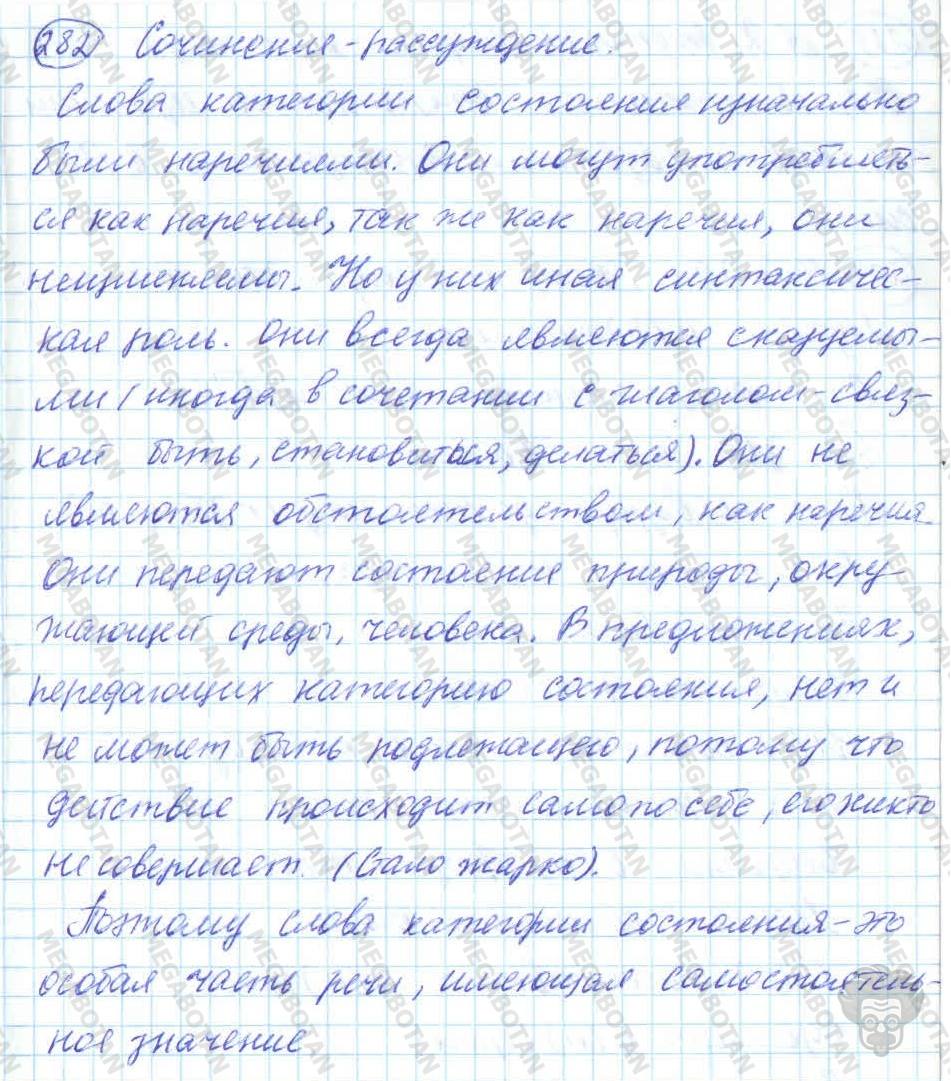 282 Сочинение-рассуждение.
Слова категории состояния изначально
были наречиями. Они могут употреблять-
ся как наречия, так же как наречия, они
неизменяемы. Но у них иная синтаксичес-
кая роль. Они всегда являются сказуемы-
ми (иногда в сочетании с глаголом-связ-
кой быть, становиться, делаться). Они не
являются обстоятельством, как наречия
Они передают состояние природы, окру-
жающей среды, человека. В предложениях,
передающих категорию состояния, нет и
не может быть подлежащего, потому что
действие происходит само по себе, его никто
не совершает. (Стало жарко).
Поэтому слова категории состояния-это
особая часть речи, имеющая самостоятель-
ное значение
MEGABOTAN